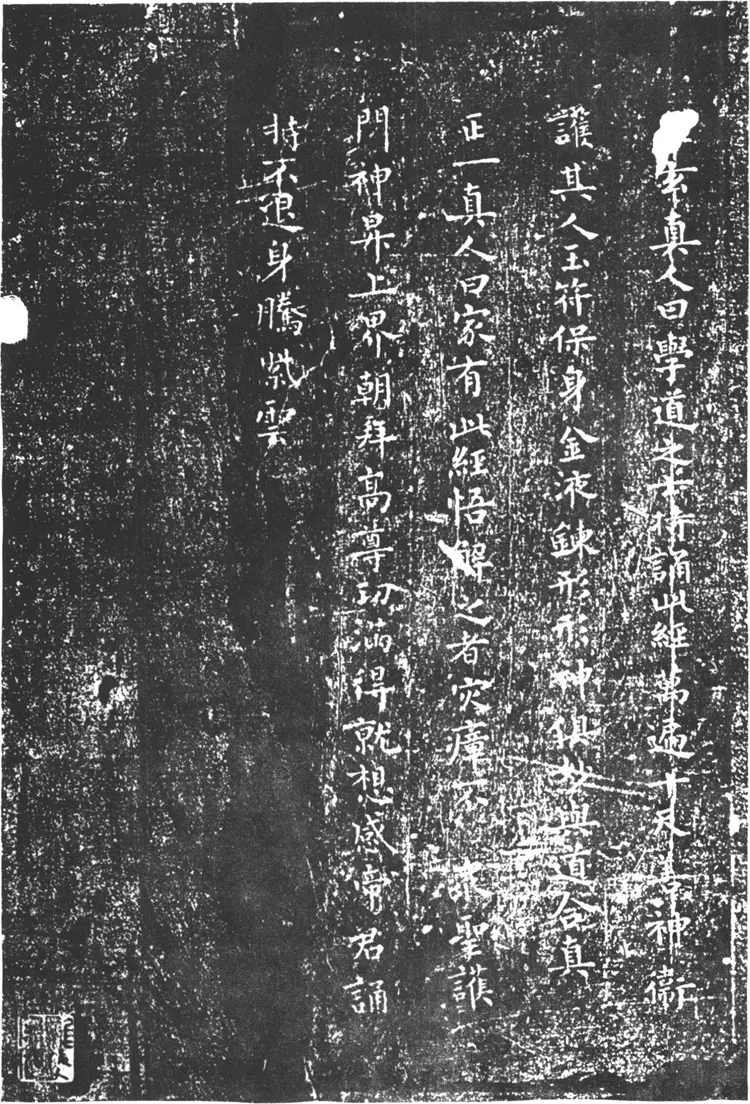 玄真人曰學道之士持誦此經萬遍十天善神衛
護其人玉符保身金液鍊形形神俱妙與道合真
正一真人曰家有此經悟解之者灾瘴不 眾聖護
門神昇上界朝拜高尊功滿得就想感帝君誦
持不退身騰紫雲